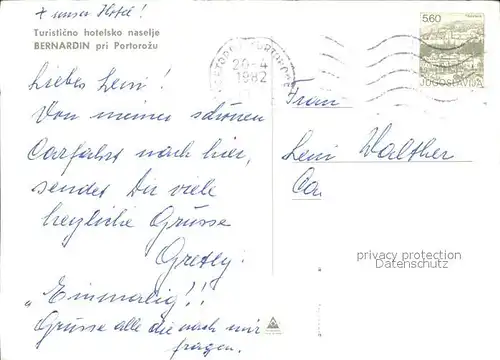 + unser Hotel!
Turistično hotelsko naselje
BERNARDIN pri Portorožu
Liebes Leni!
Von meiner schönen
Carfahrt nach hier,
sendet Dir viele
herzliche Grüsse
Gretly.
"Einmalig"!!
Grüsse alle die nach mir
fragen.
20-4
1982
560
JUGOSLAVIJA
Frau
Leni Walther
Ca
privacy protection
Datenschutz